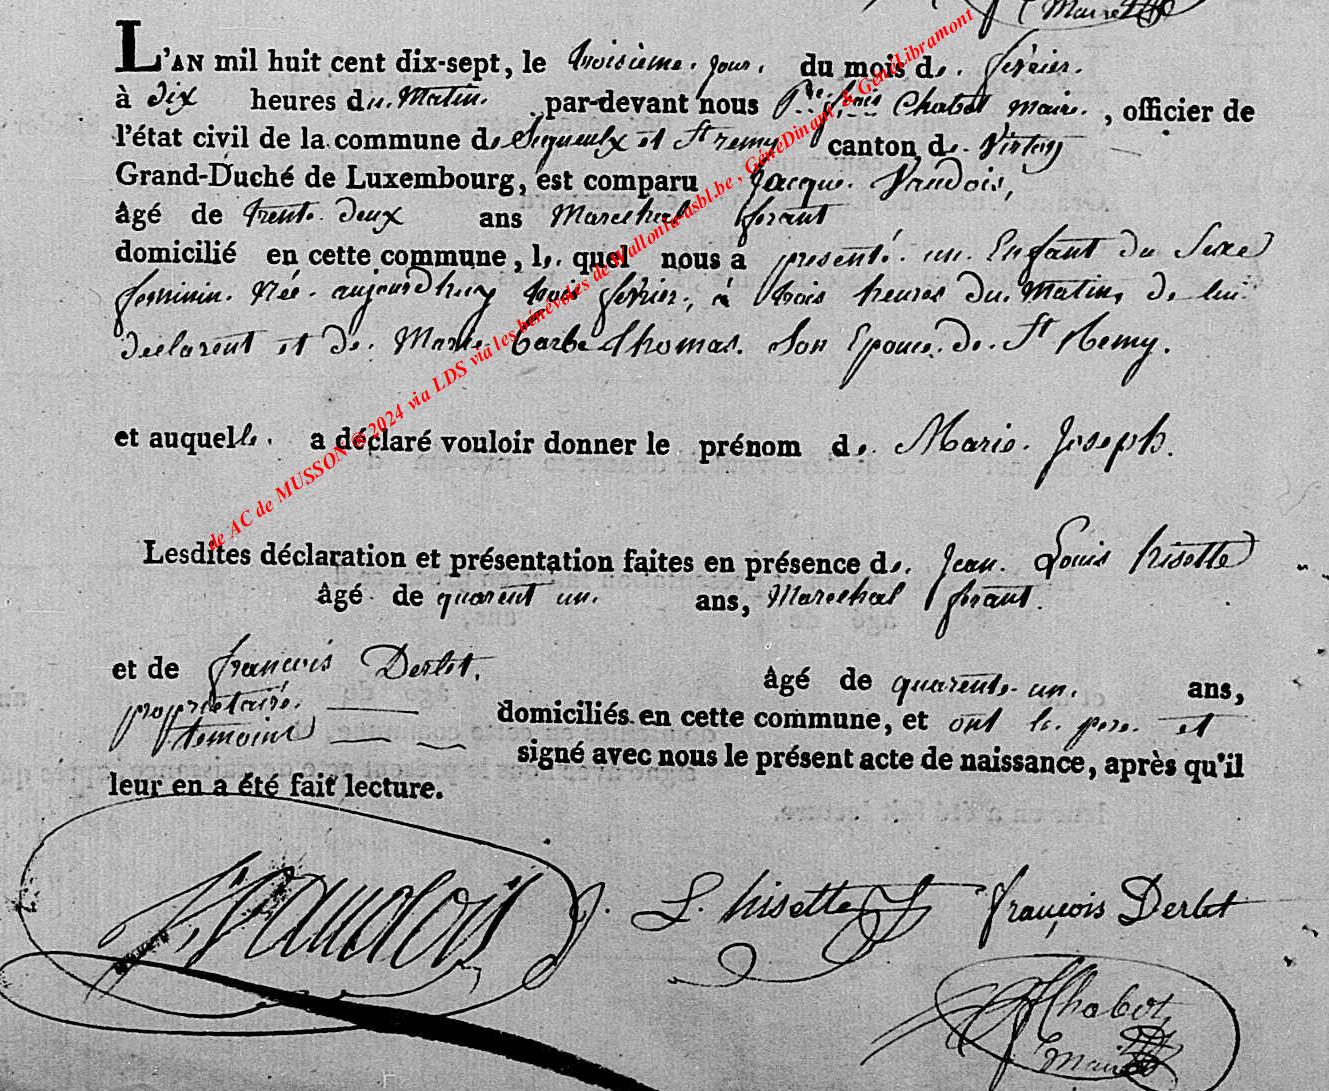 Maire
L'AN mil huit cent dix-sept, le troisieme. jour. du mois de. février.
à dix heures du. Matin. par-devant nous Pre. frçois Chabot maire. , officier de
l'état civil de la commune de Signeulx et St remy canton de. Virton
Grand-Duché de Luxembourg, est comparu Jacque. Vaudois,
âgé de trente deux ans Marechal ferant
domicilié en cette commune, le. quel nous a presenté. un. Enfant du Sexe
feminin. Née. aujourdhuy trois fevrier., à trois heures du. Matin, de lui
declarent et de. Marie. barbe thomas. Son Epouse. de. St Remy.
et auquelle. a déclaré vouloir donner le prénom de. Marie. Joseph.
Lesdites déclaration et présentation faites en présence de. Jean. Louis hisette
âgé de quarent un. ans, Marechal ferant.
et de francois Derlet. âgé de quarente un. ans,
propriétaire. domiciliés en cette commune, et ont le pere. et
temoins signé avec nous le présent acte de naissance, après qu'il
leur en a été fait lecture.
J. Vaudois J. L. hisette françois Derlet
Chabot
maire
de AC de MUSSON © 2024 via LDS via les bénévoles de Wallonia-asbl.be , GénéDinant & GénéLibramont